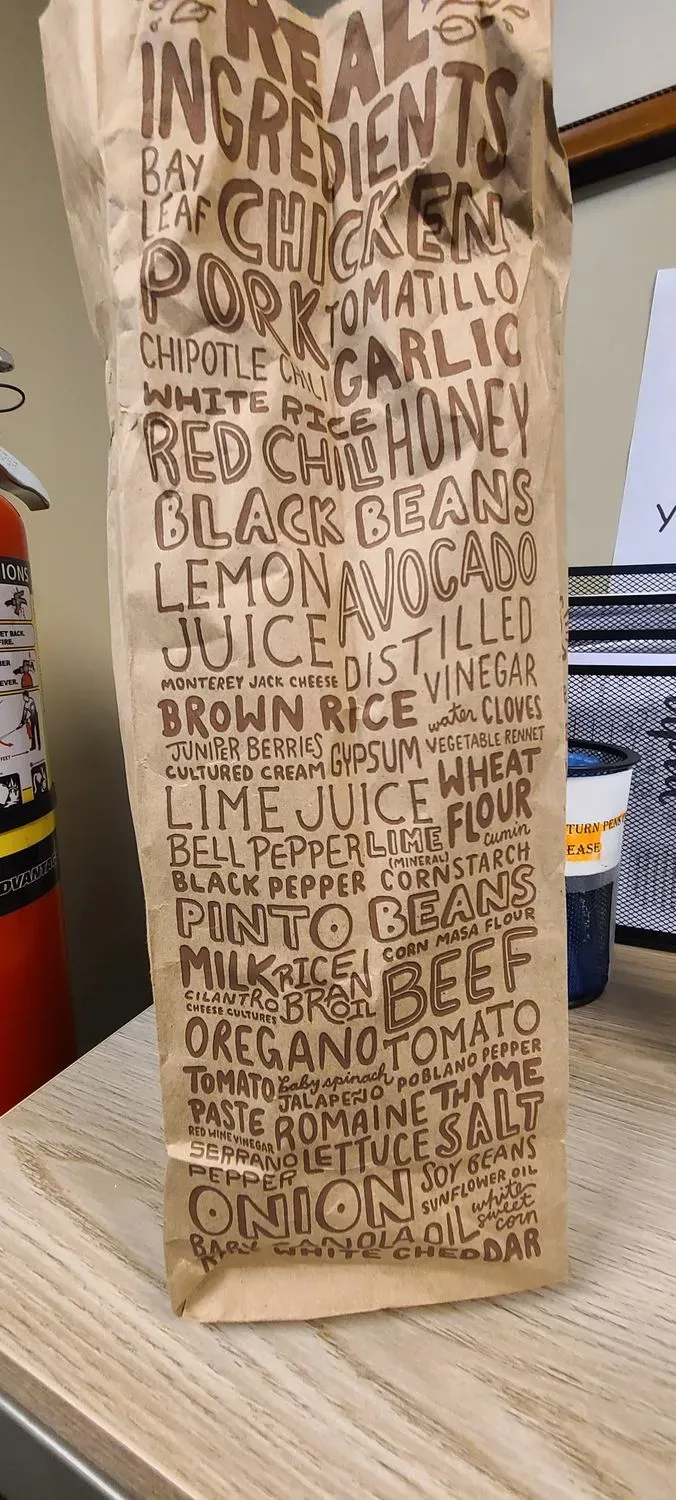 REAL
INGREDIENTS
BAY
LEAF
CHICKEN
PORK
TOMATILLO
CHIPOTLE CHILI
GARLIC
WHITE RICE
RED CHILI
HONEY
BLACK BEANS
LEMON
JUICE
AVOCADO
DISTILLED
VINEGAR
MONTEREY JACK CHEESE
BROWN RICE
water CLOVES
JUNIPER BERRIES
GYPSUM
VEGETABLE RENNET
CULTURED CREAM
WHEAT
FLOUR
LIME JUICE
cumin
BELL PEPPER
LIME
(MINERAL)
BLACK PEPPER
CORNSTARCH
PINTO BEANS
CORN MASA FLOUR
MILK
RICE
BRAN
OIL
CILANTRO
CHEESE CULTURES
BEEF
OREGANO
TOMATO
TOMATO
PASTE
baby spinach
POBLANO PEPPER
JALAPEÑO
THYME
RED WINE VINEGAR
ROMAINE
LETTUCE
SALT
SERRANO
PEPPER
ONION
SOY BEANS
SUNFLOWER OIL
white
sweet
corn
CANOLA OIL
WHITE CHEDDAR
IONS
ET BACK.
FIRE.
EVER.
FEET
DVANTAG
TURN PENS
EASE